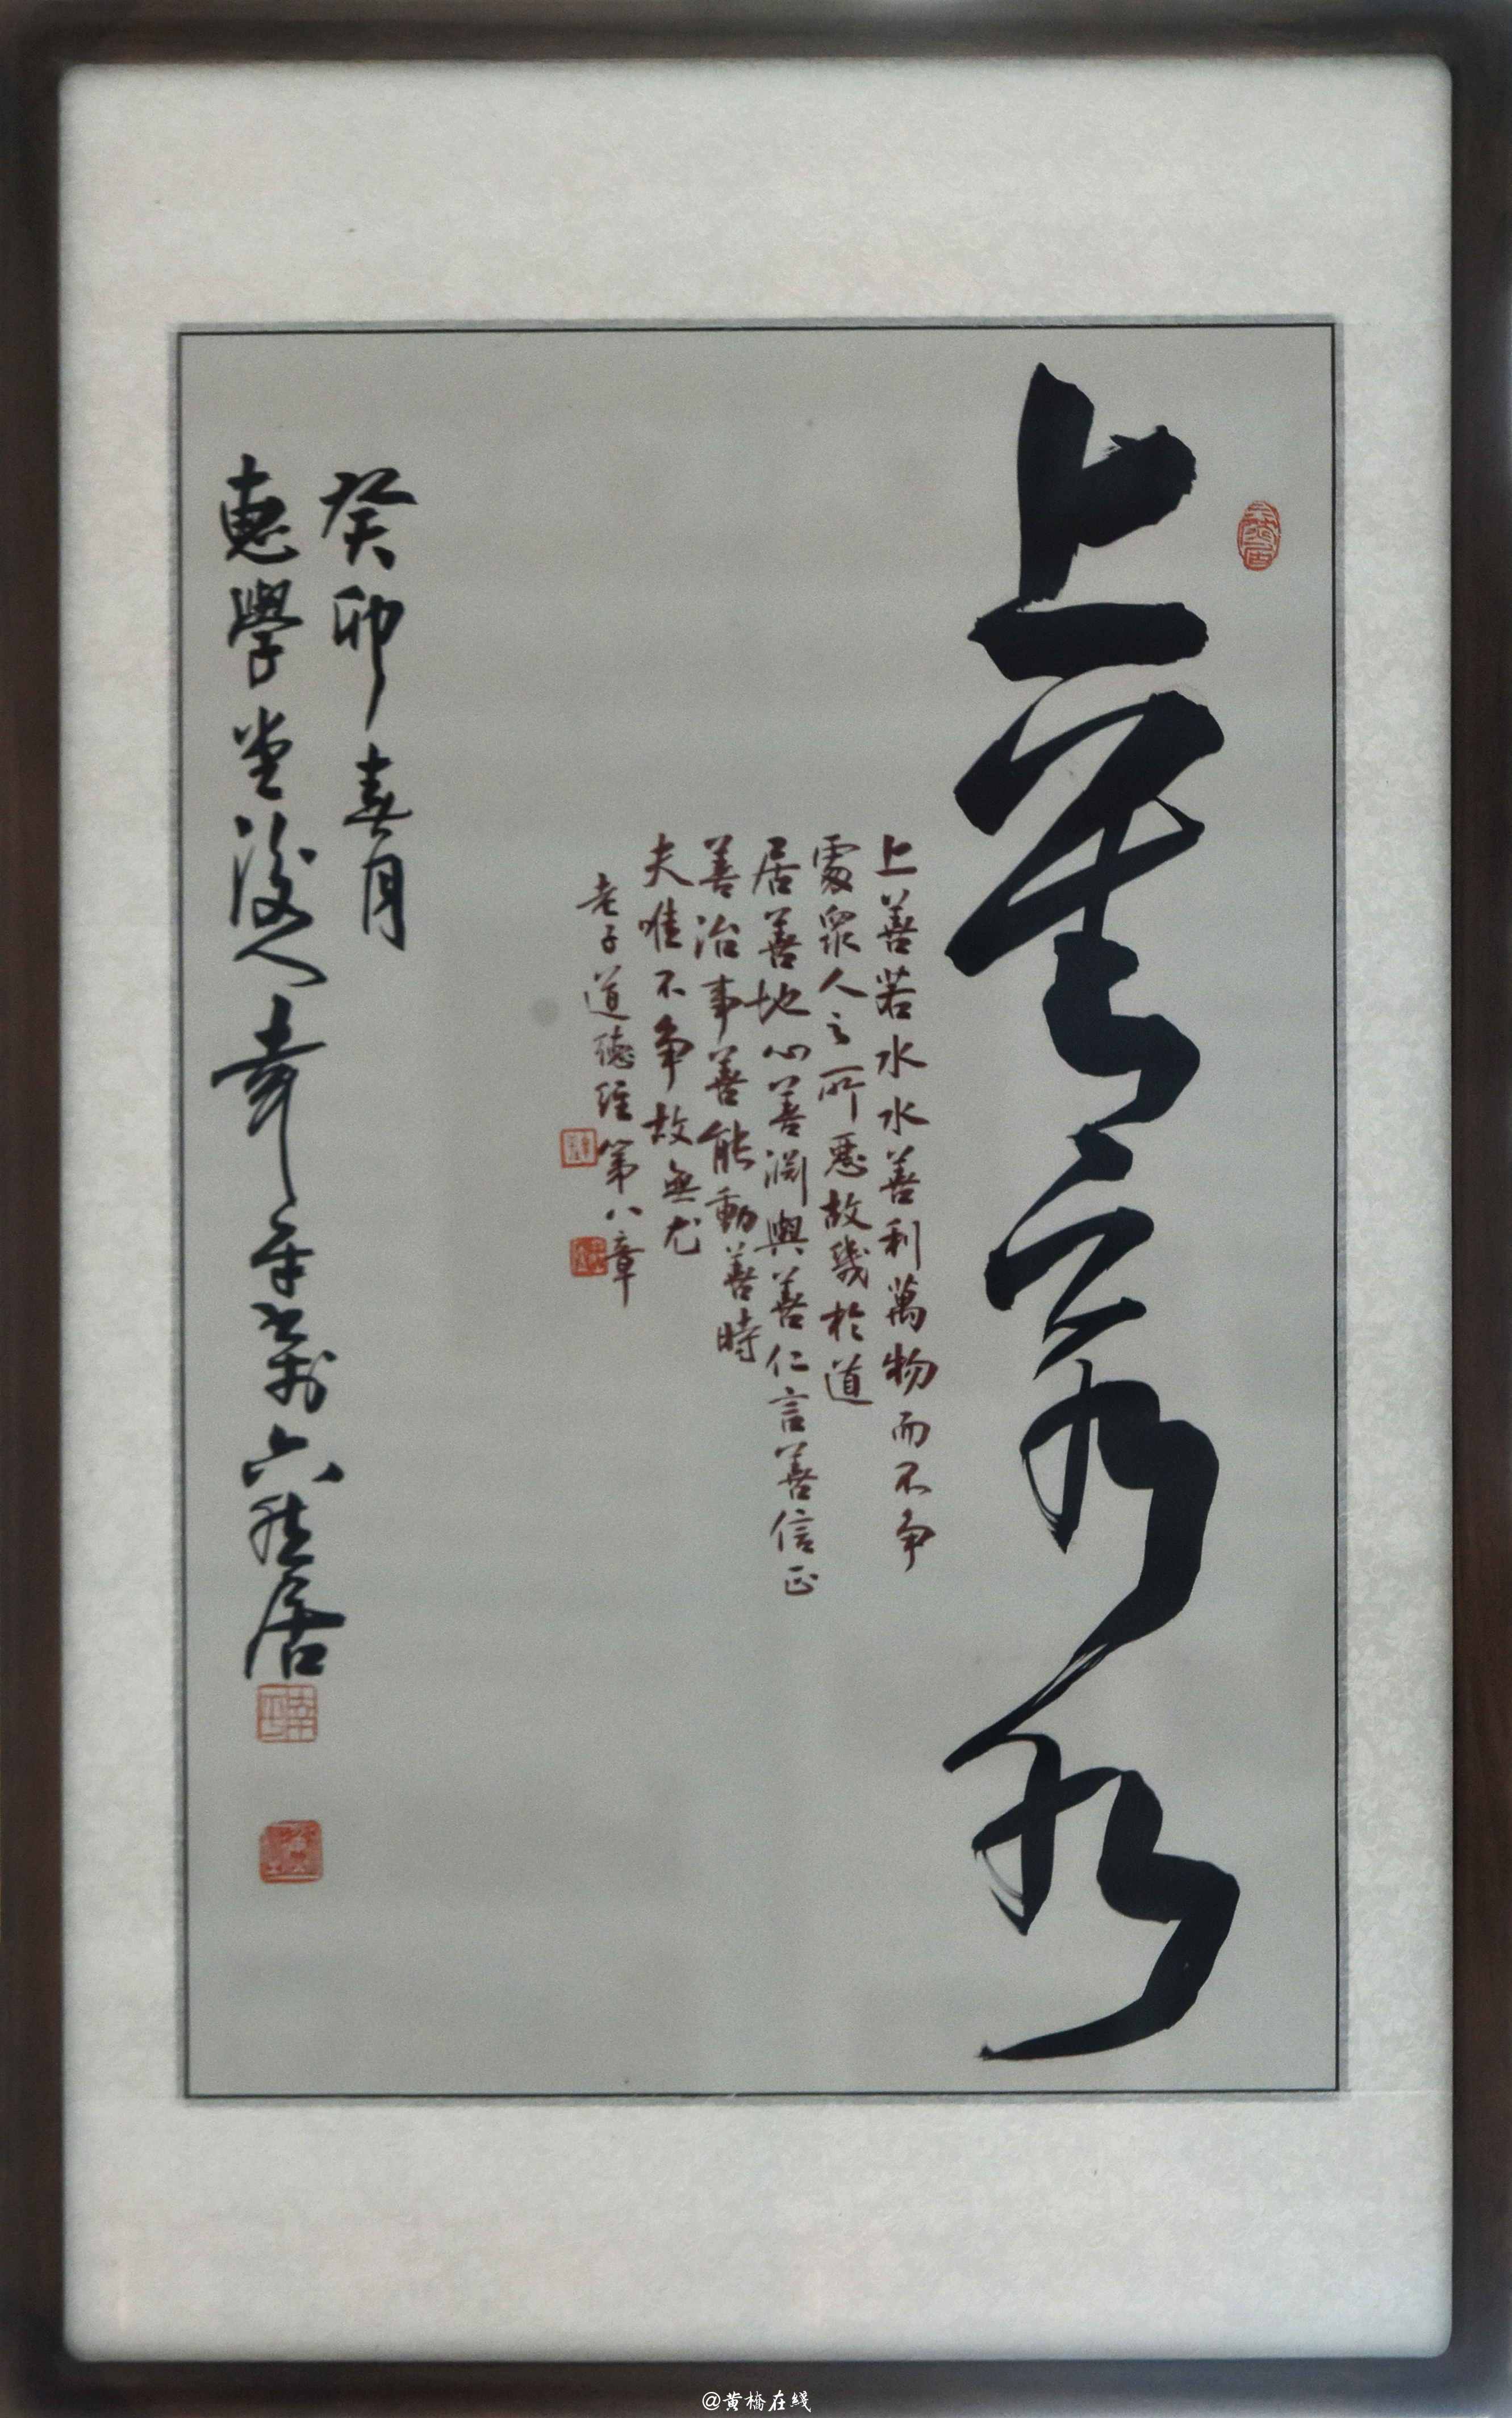 上善若水
上善若水水善利萬物而不争
處衆人之所惡故幾於道
居善地心善淵與善仁言善信正
善治事善能動善時
夫唯不争故無尤
老子道德經第八章
癸卯春月
惠學堂後人 平書於六 居
@黄橋在綫